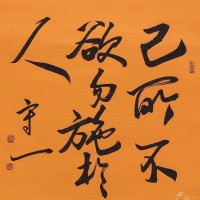 己所不
欲勿施於
人
守一